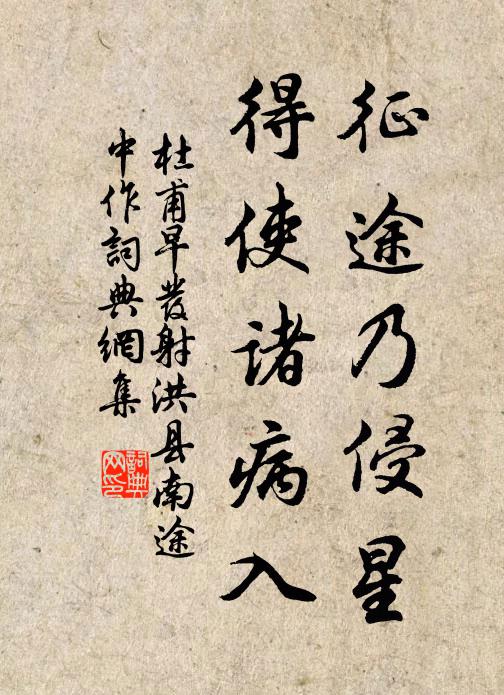 征途乃侵星
得使诸病入
杜甫早發射洪县南途
中作詞典網集
詞典
网印